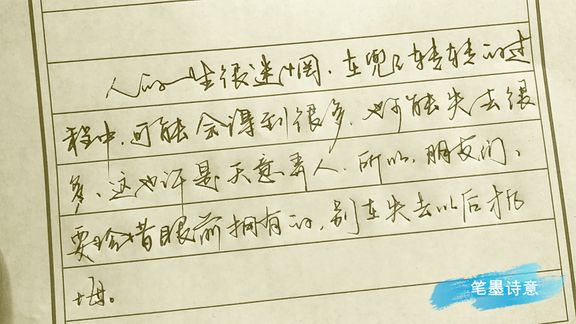 人的一生很迷惘，在兜兜转转的过
程中，可能会得到很多，也可能失去很
多，这也许是天意弄人，所以，朋友们，
要珍惜眼前拥有的，别在失去以后才后
悔。
笔墨诗意